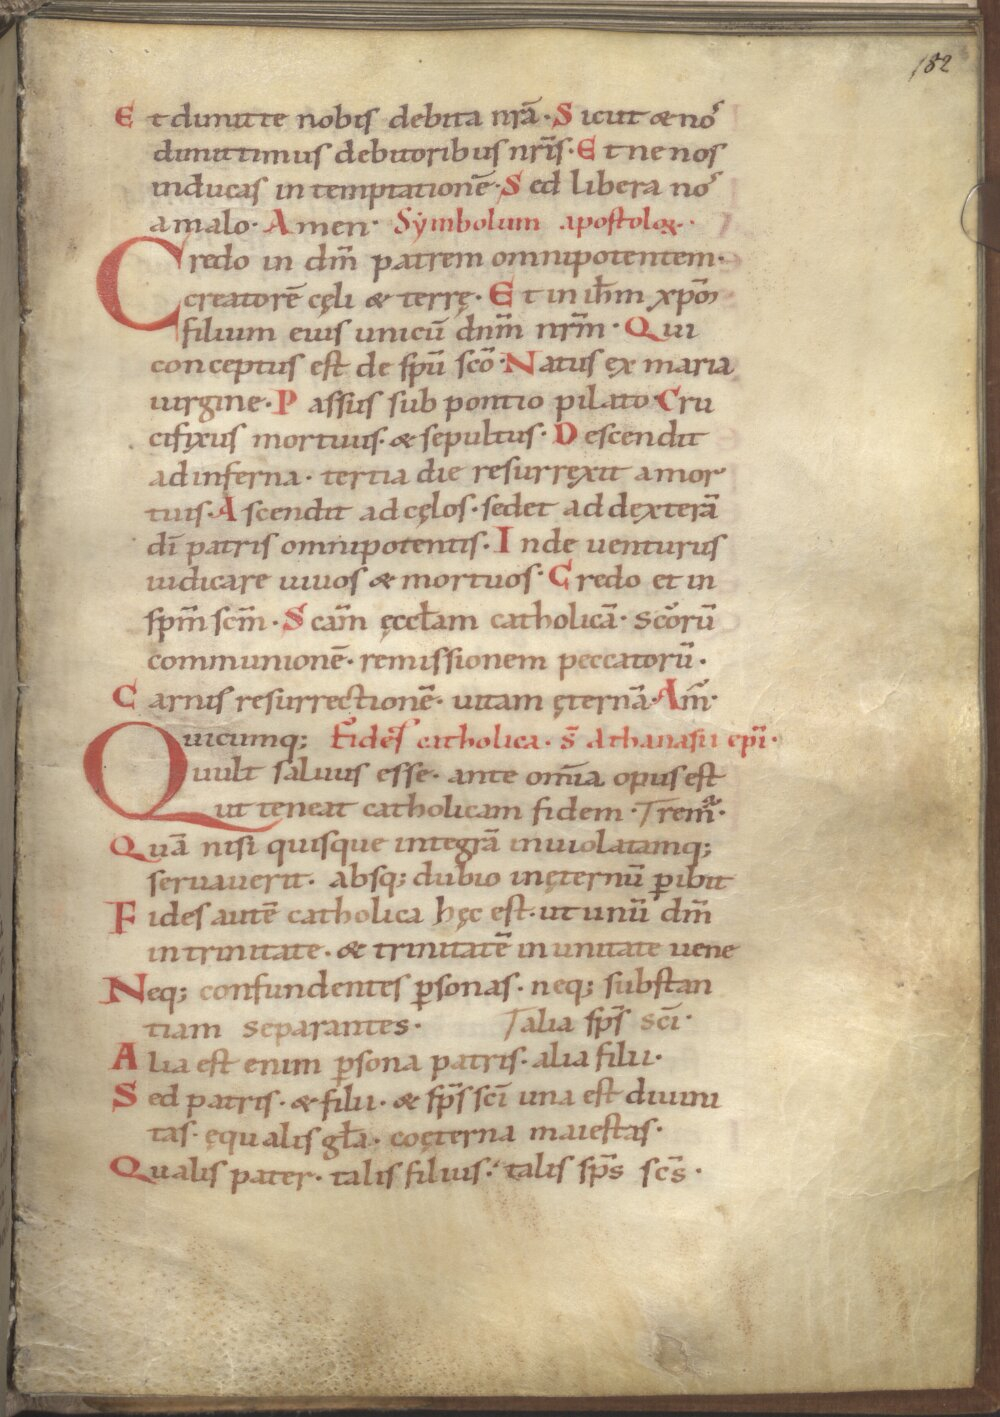 182
Et dimitte nobis debita nrā· Sicut & nos
dimittimus debitoribus nr̄is· Et ne nos
inducas in temptationē· Sed libera nos
a malo· Amen· Symbolum apostoloꝝ·
Credo in dm̄ patrem omnipotentem·
creatorē cęli & terrę· Et in ih̄m xp̄m
filium eius unicū dnm̄ nrm̄· Qui
conceptus est de spū scō· Natus ex maria
uirgine· Passus sub pontio pilato· Cru
cifixus mortuus· & sepultus· Descendit
ad inferna· tertia die resurręxit a mor
tuis· Ascendit ad cęlos· sedet ad dęxterā
dī patris omnipotentis· Inde uenturus
iudicare uiuos & mortuos· Credo et in
spm̄ scm̄· Scam̄ ęccł̄am catholicā· scōrū
communionē· remissionem peccatorū·
Carnis resurrectionē· uitam ęternā· Am̄·
Quicumq; Fides catholica· s̄ Athanasii ep̄i·
uult saluus esse· ante om̄ia opus est
ut teneat catholicam fidem· Trem̄·
Quā nisi quisque integrā inuiolatamq;
seruauerit· absq; dubio in ęternū ꝑibit
Fides autē catholica hęc est· ut unū dm̄
in trinitate· & trinitatē in unitate uene
Neq; confundentes ꝑsonas· neq; substan
tiam separantes· Talia sp̄s scī·
Alia est enim ꝑsona patris· alia filii·
Sed patris· & filii· & sp̄s scī una est diuini
tas· ęqualis gł̄a· coęterna maiestas·
Qualis pater· talis filius· talis sp̄s sc̄s·